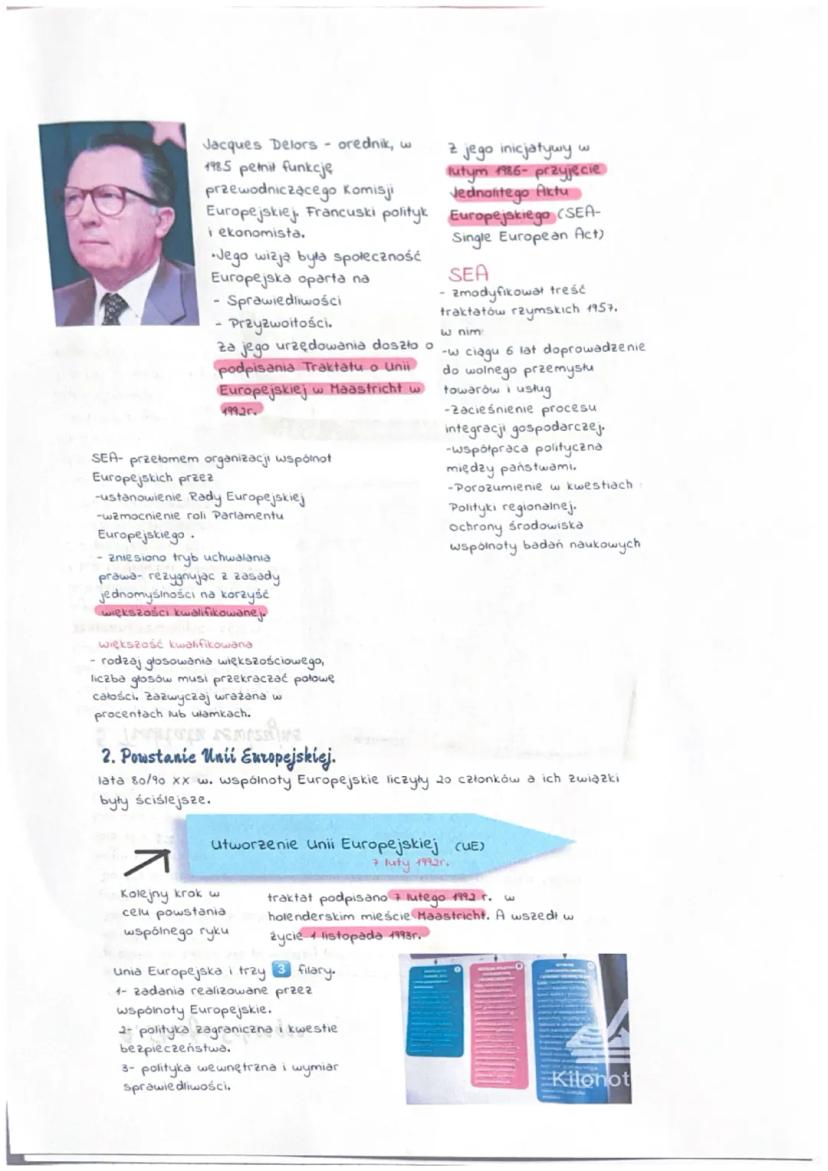 Jacques Delors - orędnik, w
1985 pełnił funkcję
przewodniczącego Komisji
Europejskiej. Francuski polityk
i ekonomista.
•Jego wizją była społeczność
Europejska oparta na
- Sprawiedliwości
- Przyzwoitości.
Za jego urzędowania doszło o
podpisania Traktatu o Unii
Europejskiej w Maastricht w
1992r.
Z jego inicjatywy w
lutym 1986- przyjęcie
Jednolitego Aktu
Europejskiego (SEA-
Single European Act)
SEA
- zmodyfikował treść
traktatów rzymskich 1957.
w nim:
-w ciągu 6 lat doprowadzenie
do wolnego przemysłu
towarów i usług
-zacieśnienie procesu
integracji gospodarczej.
-współpraca polityczna
między państwami.
-Porozumienie w kwestiach :
Polityki regionalnej.
Ochrony środowiska
wspólnoty badań naukowych
SEA- przełomem organizacji wspólnot
Europejskich przez
-ustanowienie Rady Europejskiej
-wzmocnienie roli Parlamentu
Europejskiego.
- zniesiono tryb uchwalania
prawa- rezygnując z zasady
jednomyślności na korzyść
większości kwalifikowanej.
większość kwalifikowana
- rodzaj głosowania większościowego,
liczba głosów musi przekraczać połowę
całości. Zazwyczaj wrażana w
procentach lub ułamkach.
2. Powstanie Unii Europejskiej.
lata 80/90 XX w. wspólnoty Europejskie liczyły 20 członków a ich związki
były ściślejsze.
Utworzenie Unii Europejskiej (UE)
7 luty 1992r.
Kolejny krok w
celu powstania
wspólnego ryku
traktat podpisano 7 lutego 1992 r. w
holenderskim mieście Maastricht. A wszedł w
życie 1 listopada 1993r.
Unia Europejska i trzy 3 filary.
1- zadania realizowane przez
wspólnoty Europejskie.
2- polityka zagraniczna i kwestie
bezpieczeństwa.
3- polityka wewnętrzna i wymiar
sprawiedliwości.
Kilonot